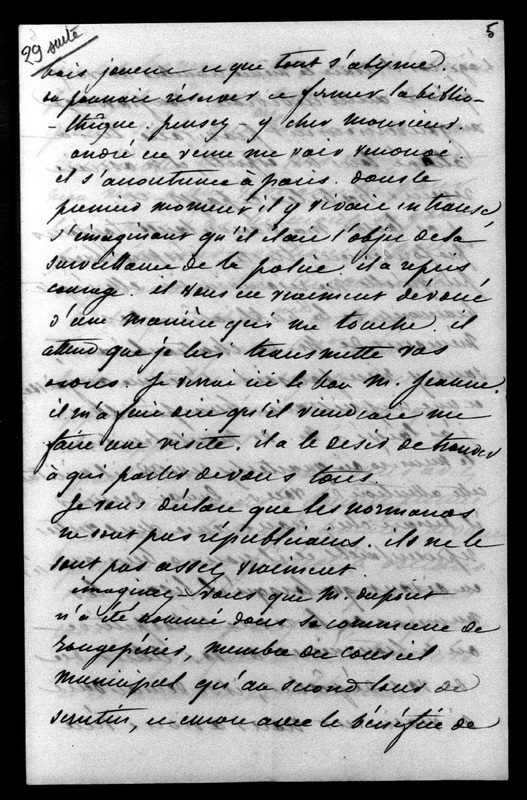 29 suite
5
bois jouent et que tout s'abyme.
on pourrait réserver et fermer la biblio-
-thêque. pensez-y cher monsieur.
andré est venu me voir
il s'acoutume à paris. dans le
premier moment il y vivait en transe
s'imaginant qu'il était l'objet de la
surveillance de la police. il a repris
courage. il vous est vraiment dévoué
d'une manière qui me touche. il
attend que je lui transmette vos
Je verrai ici le bon M. Jeanne.
il m'a fait dire qu'il viendrait me
faire une visite. il a le desir de trouver
à qui parler de vous tous.
Je vous déclare que les normands
ne sont pas républicains. ils ne le
sont pas assez vraiment.
imaginez-vous que M. dupont
n'a été nommé dans sa commune de
membre du conseil
municipal qu'au second tour de
scrutin, et encore avec le bénéfice de